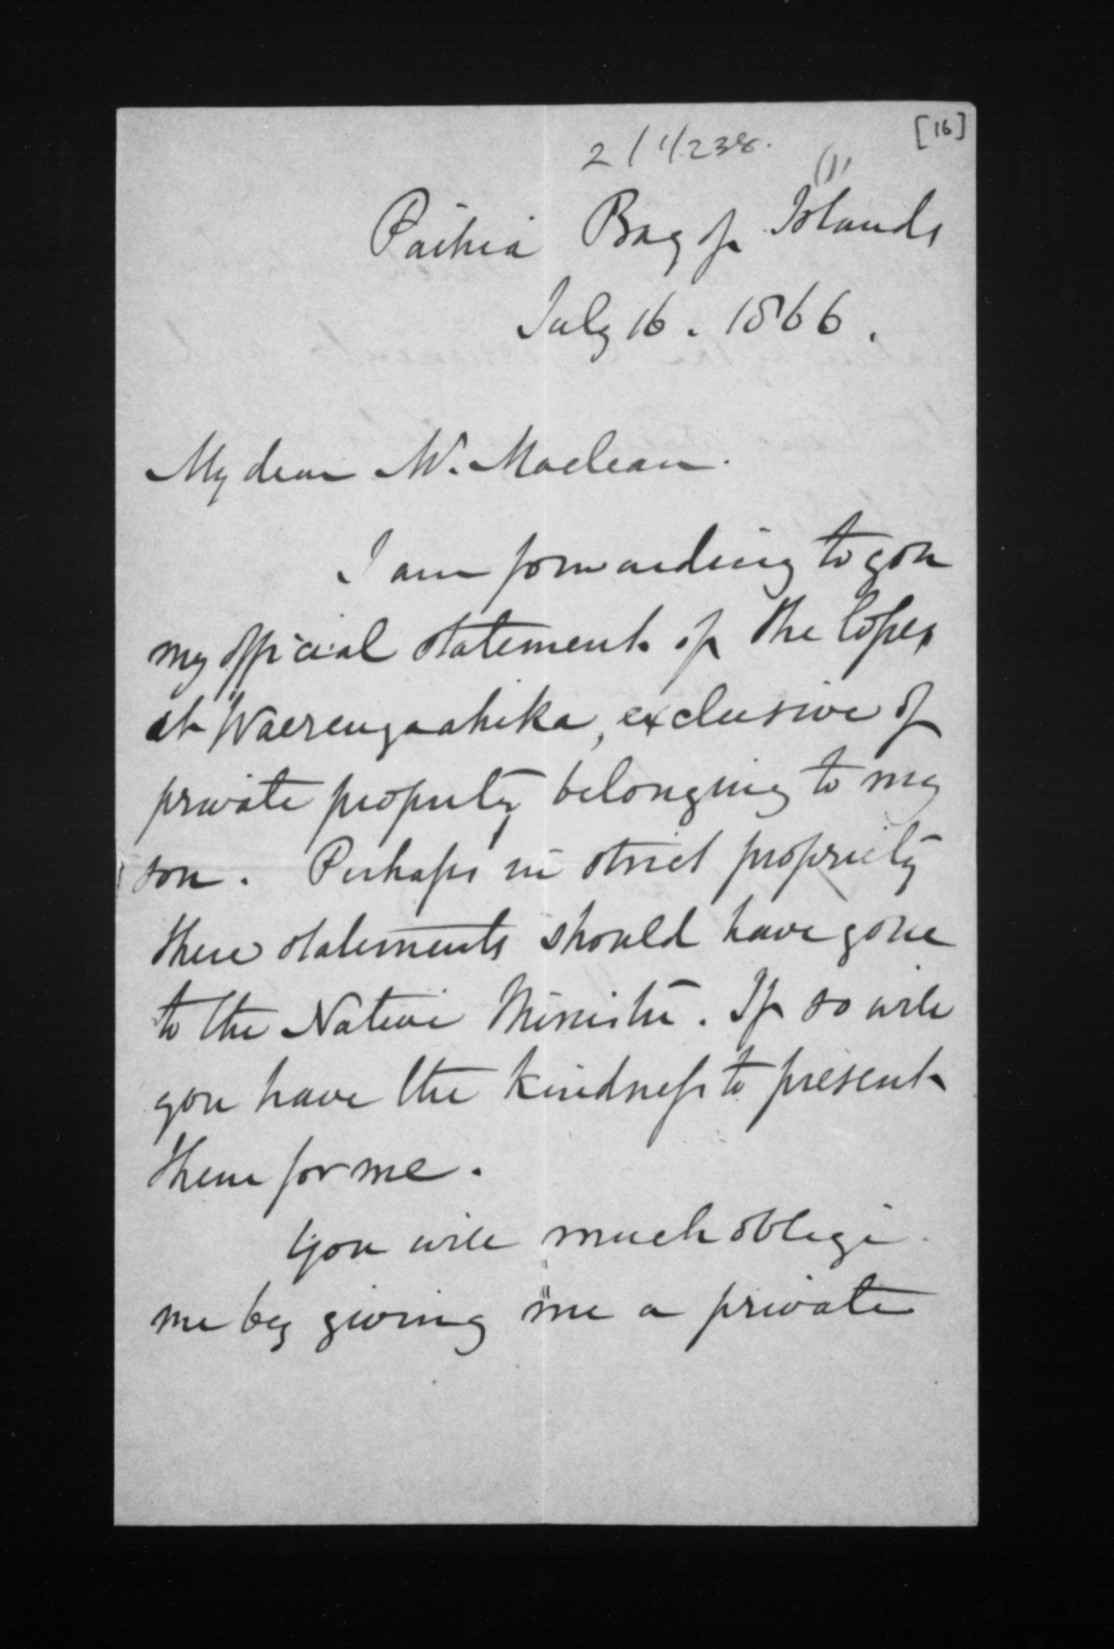 [16]
2/1/238.
(1)
Paihia Bay of Islands
July 16. 1866.
My dear Mr. Maclean.
I am forwarding to you
my official statement of the losses
at Waerengaahika, exclusive of
private property belonging to my
son. Perhaps in strict propriety
these statements should have gone
to the Native Minister. If so will
you have the kindness to present
them for me.
You will much oblige
me by giving me a private